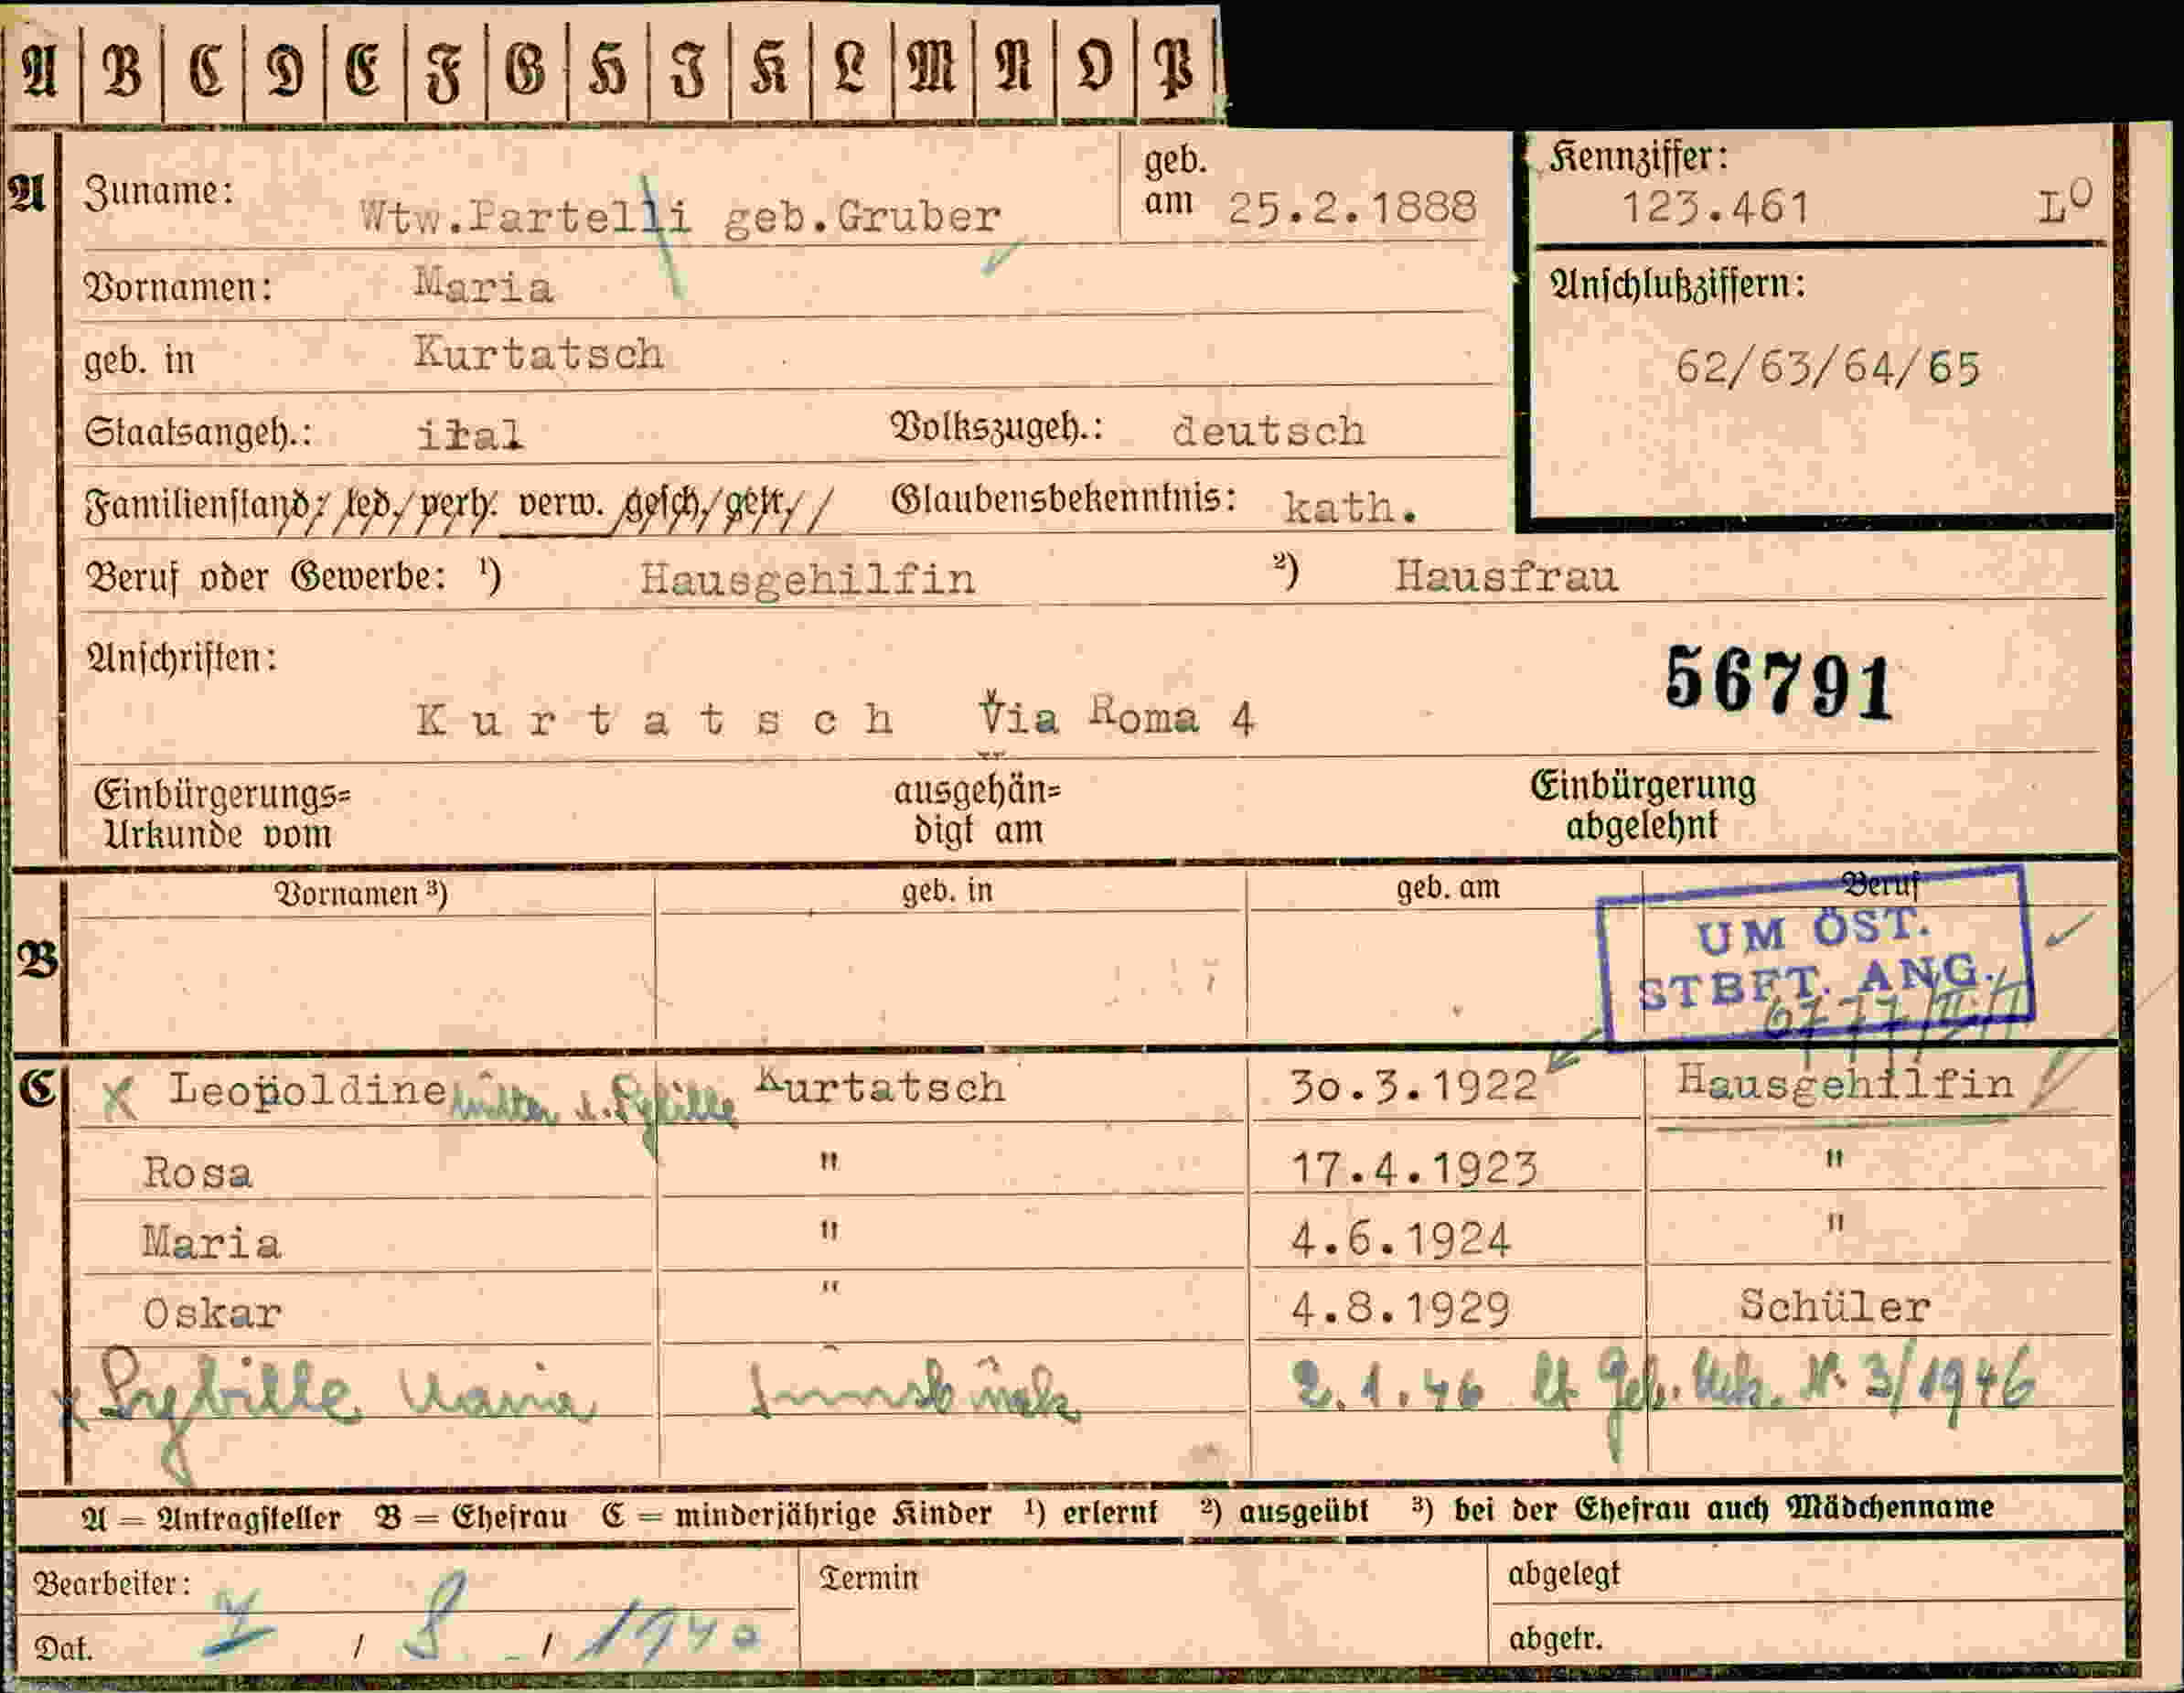 A B C D E F G H I K L M N O P
A Zuname: Wtw.Partelli geb.Gruber geb. am 25.2.1888 Kennziffer: 123.461 LO
Vornamen: Maria Anschlußziffern:
geb. in Kurtatsch 62/63/64/65
Staatsangeh.: ital Volkszugeh.: deutsch
Familienstand: led. verh. verw. gesch. getr. Glaubensbekenntnis: kath.
Beruf oder Gewerbe: ¹) Hausgehilfin ²) Hausfrau
Anschriften: 56791
Kurtatsch Via Roma 4
Einbürgerungs= ausgehän= Einbürgerung
Urkunde vom digt am abgelehnt
B Vornamen ³) geb. in geb. am Beruf
UM ÖST.
STBFT. ANG.
C X Leopoldine Mutter d. Sybille Kurtatsch 30.3.1922 Hausgehilfin
Rosa " 17.4.1923 "
Maria " 4.6.1924 "
Oskar " 4.8.1929 Schüler
x Sybille Maria Innsbruck 2.1.46 lt. Geb. Urk. Nr. 3/1946
A = Antragsteller B = Ehefrau C = minderjährige Kinder ¹) erlernt ²) ausgeübt ³) bei der Ehefrau auch Mädchenname
Bearbeiter: Termin abgelegt
Dat. 7 / 8 / 1940 abgetr.